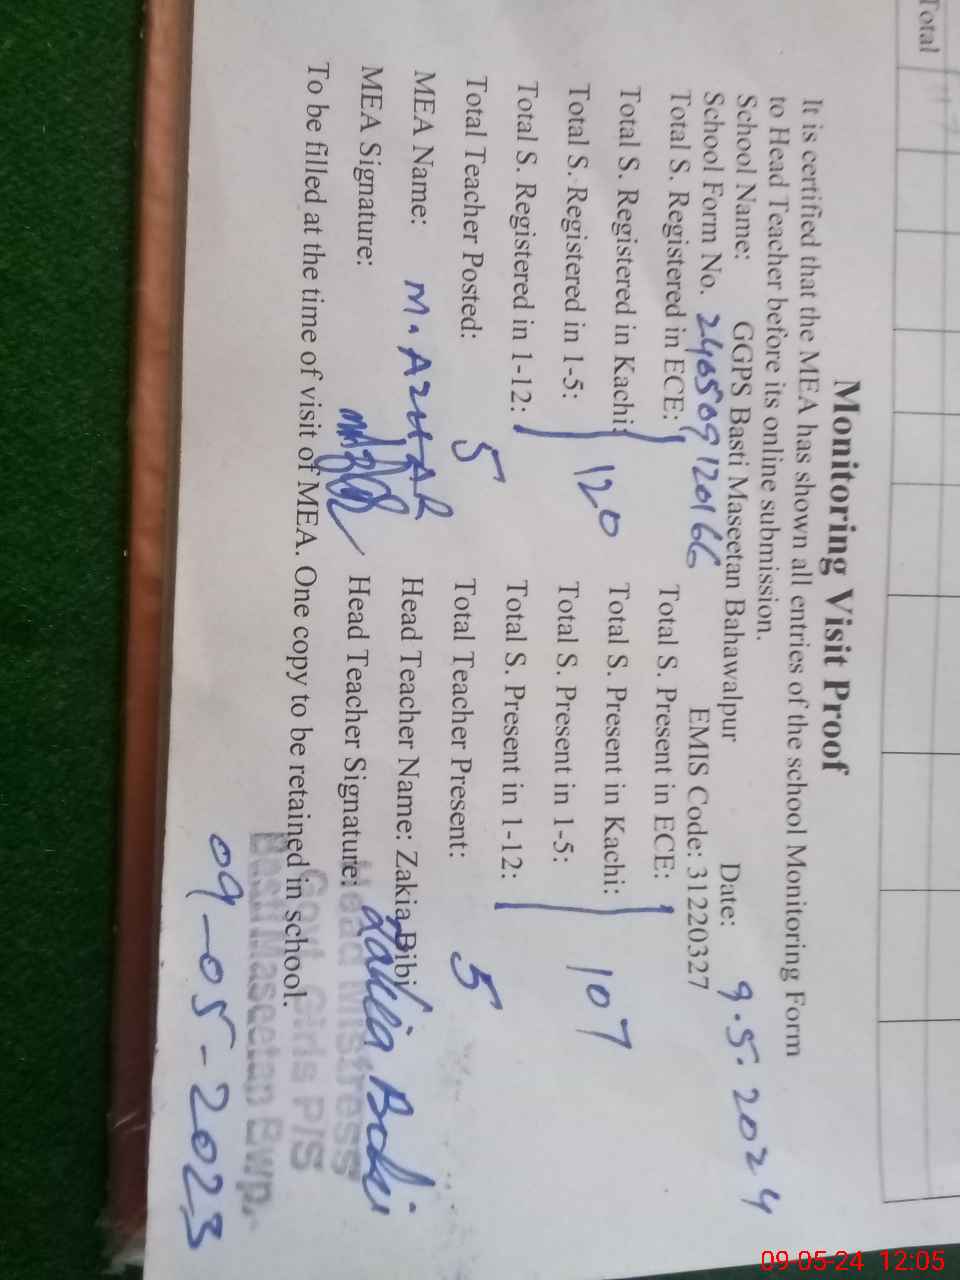 Total
Monitoring Visit Proof
It is certified that the MEA has shown all entries of the school Monitoring Form
to Head Teacher before its online submission.
School Name: GGPS Basti Maseetan Bahawalpur Date: 9.5.2024
School Form No. 240509120166 EMIS Code: 31220327
Total S. Registered in ECE: Total S. Present in ECE:
Total S. Registered in Kachi: Total S. Present in Kachi:
Total S. Registered in 1-5: 120 Total S. Present in 1-5: 107
Total S. Registered in 1-12: Total S. Present in 1-12:
Total Teacher Posted: 5 Total Teacher Present: 5
MEA Name: M. AzHAR Head Teacher Name: Zakia Bibi
MEA Signature: Head Teacher Signature: Zakia Bibi
To be filled at the time of visit of MEA. One copy to be retained in school.
Head Mistress
Govt. Girls P/S
Basti Maseetan Bwp.
09-05-2023
09-05-24 12:05